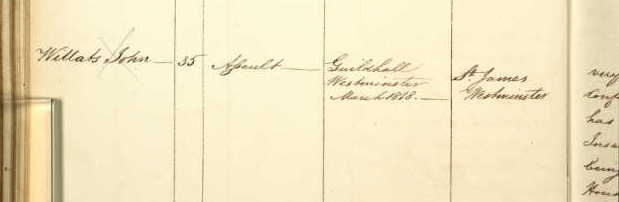 Willats John — 35 Assault — Guildhall
Westminster
March 1818. —
St. James
Westminster
very
has
Insa
being